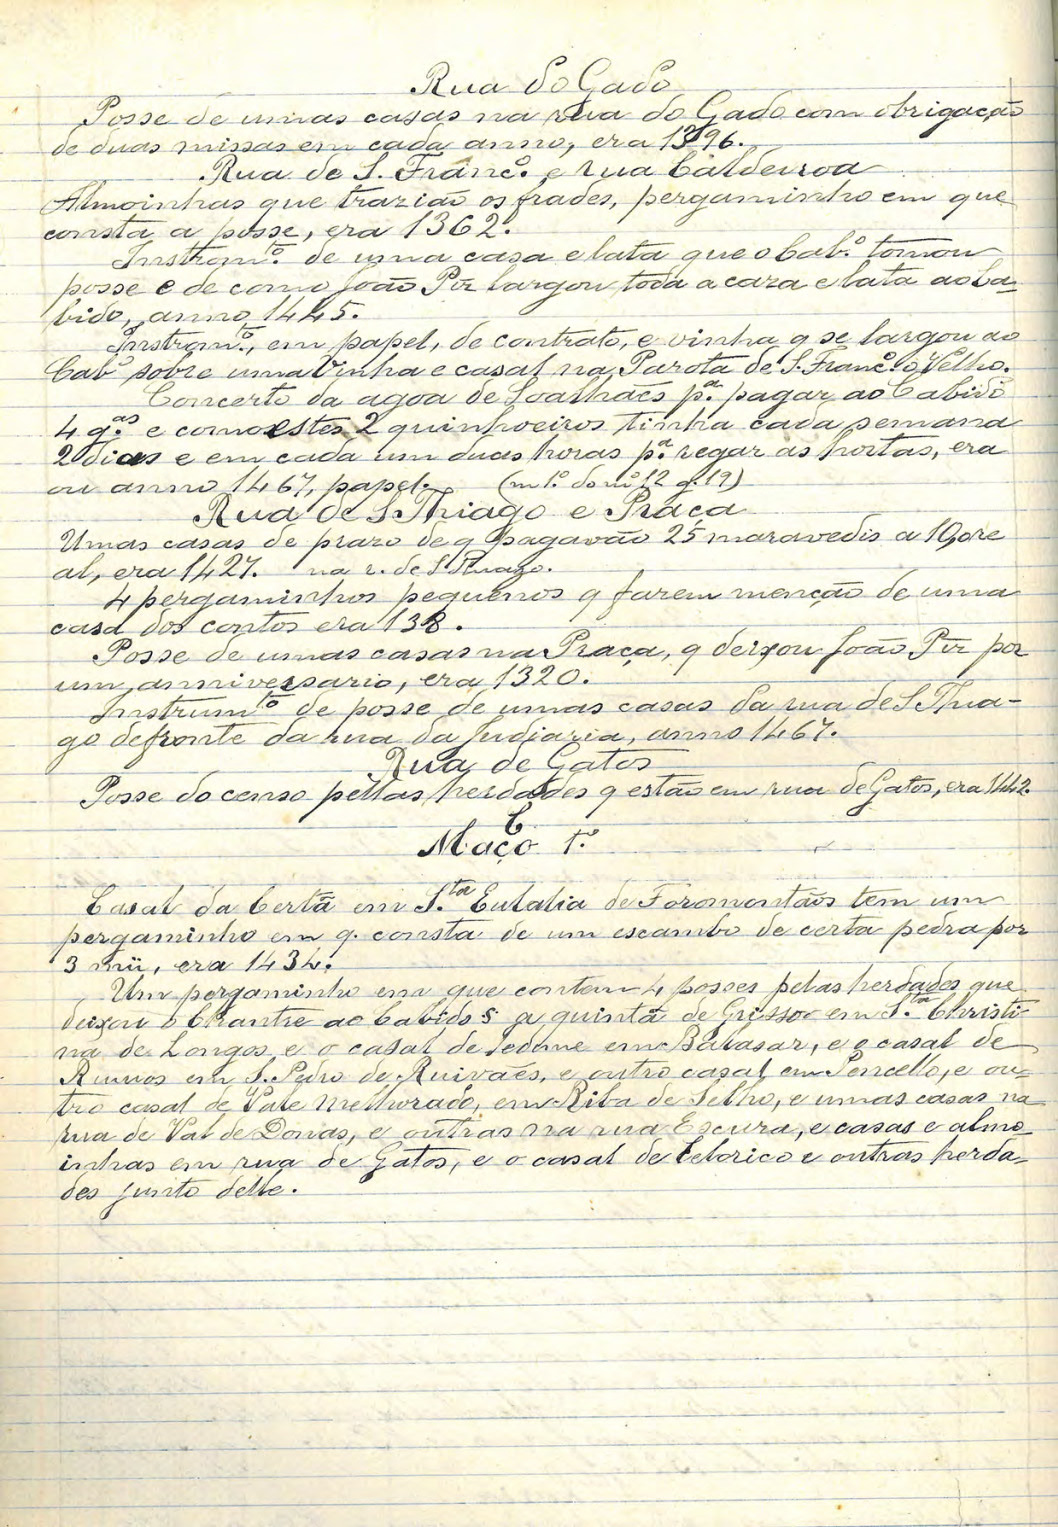 Rua do Gado
Posse de umas casas na rua do Gado com obrigação
de duas missas em cada anno, era 1396.
Rua de S. Franc.º e rua Caldeiroa
Almoinhas que trazião os frades, pergaminho em que
consta a posse, era 1362.
Instrom.to de uma casa e lata que o Cab.º tomou
posse e de como João Piz largou toda a caza e lata ao Ca-
bido, anno 1445.
Instrom.to, em papel, de contrato, e vinha q se largou ao
Cab.º sobre uma vinha e casal na Parota de S. Franc.º o Velho.
Concerto da agoa de Soalhães p.ª pagar ao Cabido
4 q.as e como estes 2 quinhoeiros tinha cada semana
2 dias e em cada um duas horas p.ª regar as hortas, era
ou anno 1467, papel. (m 1.º do n.º 12 q. 19)
Rua de S. Thiago e Praça
Umas casas de prazo de q pagavão 25 maravedis a 10, ore
al, era 1427. na r. de S Thiago.
4 pergaminhos pequenos q fazem menção de uma
casa dos contos era 138.
Posse de umas casas na Praça, q deixou João Piz por
um anniversario, era 1320.
Instrum.to de posse de umas casas da rua de S Thia-
go defronte da rua da Judiaria, anno 1467.
Rua de Gatos
Posse do censo pellas herdades q estão em rua de Gatos, era 1442.
C
Maço 1.º
Casal da Certã em S.ta Eulalia de Foromontãos tem um
pergaminho em q. consta de um escambo de certa pedra por
3 mil, era 1434.
Um pergaminho em que contem 4 posses pelas herdades que
deixou o Chantre ao Cabido s a quintã de em S.ta Christi-
na de Longos, e o casal de Sedime em Balasar, e o casal de
em S. Pedro de Ruivães, e outro casal em Pencello, e ou-
tro casal de Vale Melhorado, em Riba de Selho, e umas casas na
rua de Val de Donas, e outras na rua Escura, e casas e almo
inhas em rua de Gatos, e o casal de Celorico e outras herda-
des junto delle.